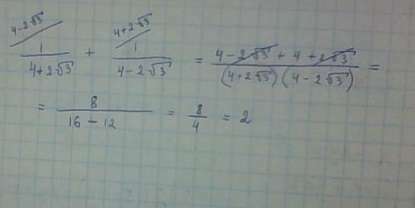 4-2√3 4+2√3
1/(4+2√3) + 1/(4-2√3) = (4-2√3 + 4+2√3)/((4+2√3)(4-2√3)) =
= 8/(16-12) = 8/4 = 2